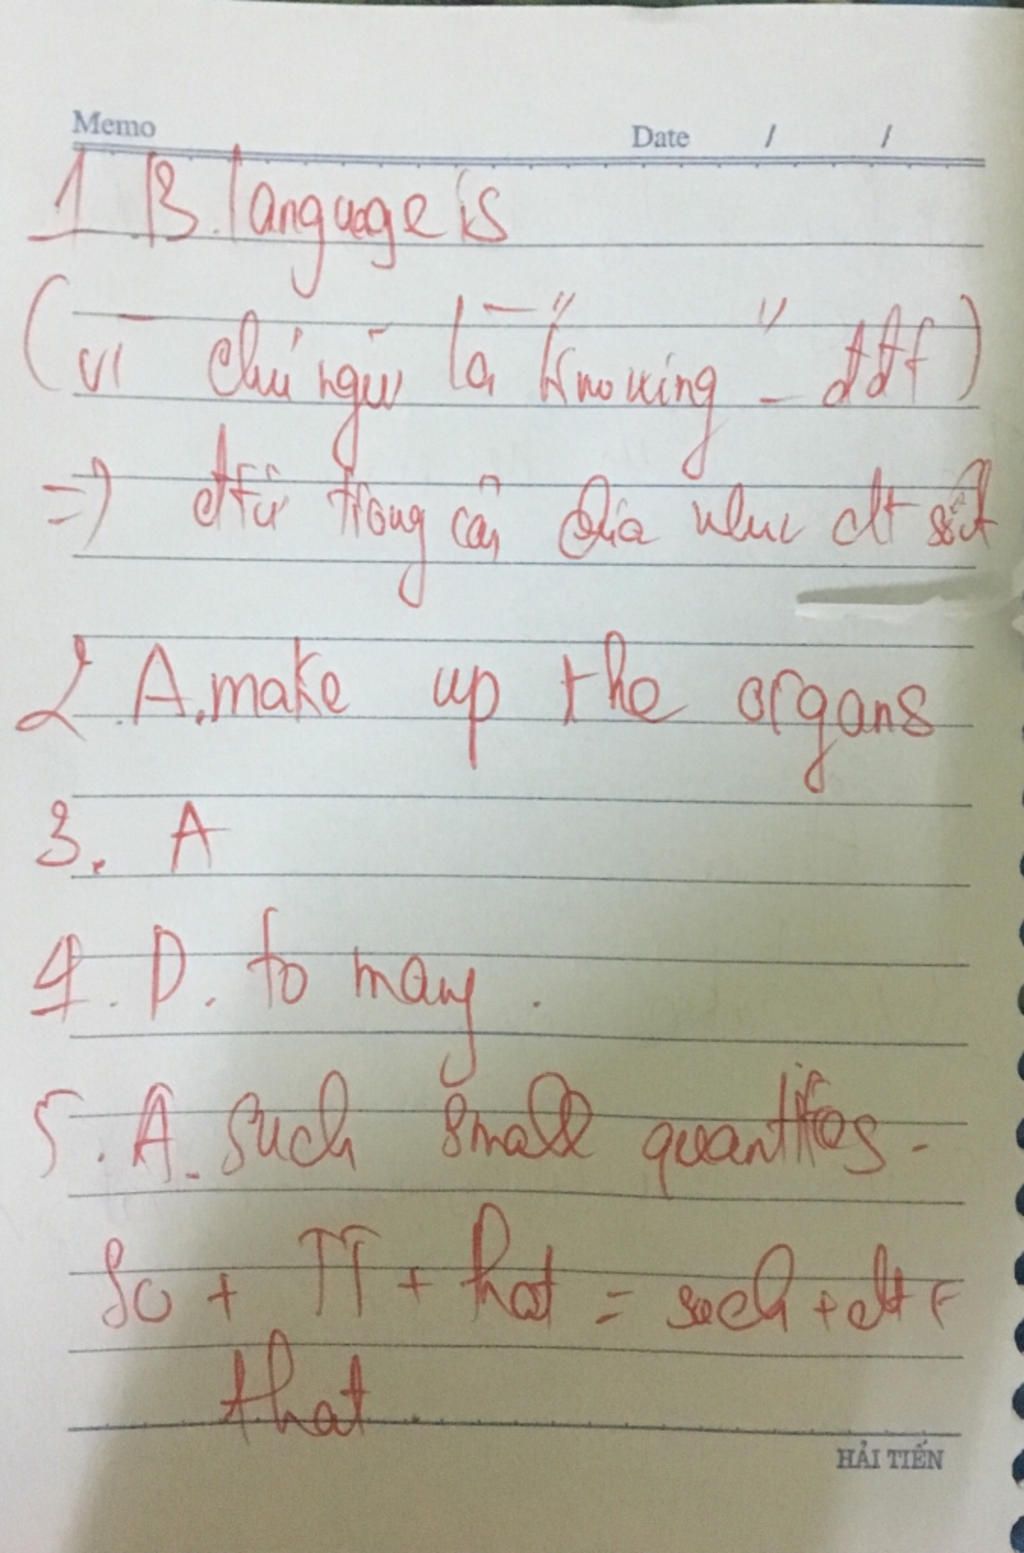 Memo Date / /
1 B. language is
(vì chủ ngữ là "knowing" - đđt)
=> đtừ trong câu chia như dt số ít
2. A. make up the organs
3. A
4. D. to many.
5. A. such small quantities.
So + TT + that = such + dt +
that
HẢI TIẾN